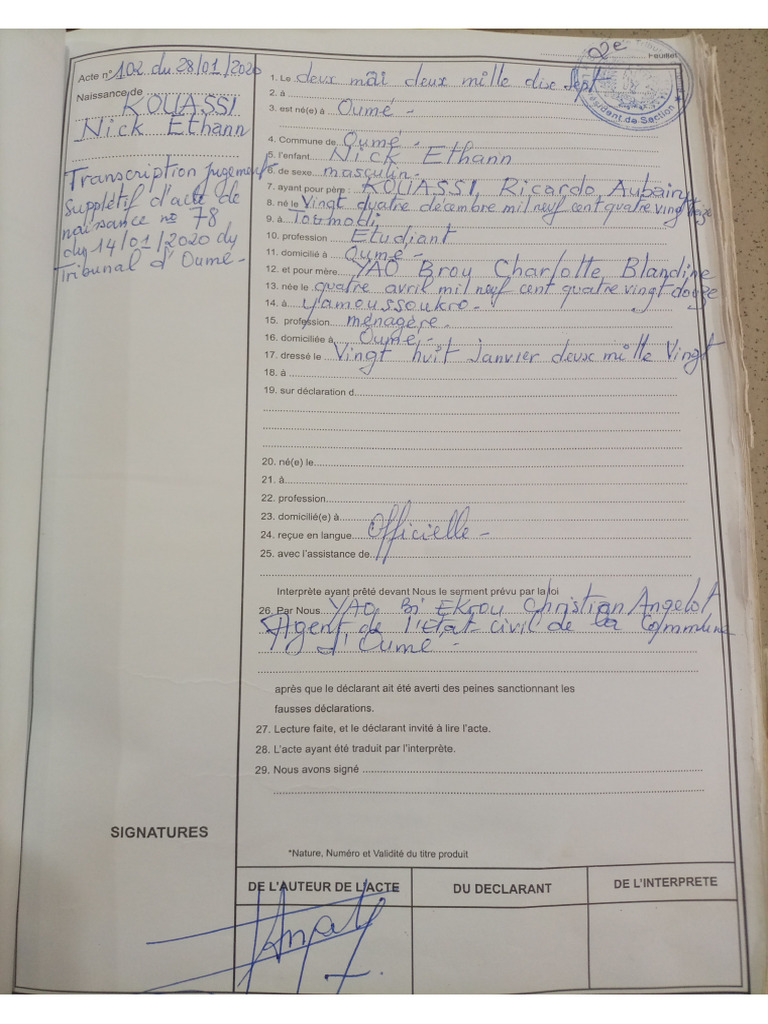 2e Feuillet
Président de Section
Acte n° 102 du 28/01/2020
Naissance de
KOUASSI
Nick Ethann
Transcription jugement
Supplétif d'acte de
naissance n° 78
du 14/01/2020 du
Tribunal d'Oumé -
1. Le deux mai deux mille dix sept
2. à
3. est né(e) à Oumé -
4. Commune de Oumé -
5. l'enfant Nick Ethann
6. de sexe masculin -
7. ayant pour père : KOUASSI, Ricardo, Aubain
8. né le Vingt quatre décembre mil neuf cent quatre vingt
9. à Toumodi
10. profession Etudiant
11. domicilié à Oumé -
12. et pour mère YAO Brou Charlotte Blandine
13. née le quatre avril mil neuf cent quatre vingt douze
14. à Yamoussoukro -
15. profession ménagère -
16. domiciliée à Oumé -
17. dressé le Vingt huit janvier deux mille Vingt
18. à
19. sur déclaration d
20. né(e) le
21. à
22. profession
23. domicilié(e) à
24. reçue en langue Officielle -
25. avec l'assistance de
Interprète ayant prêté devant Nous le serment prévu par la loi
26. Par Nous YAO Bi EKrou Christian Angelot
Agent de l'Etat civil de la Commune
d'Oumé -
après que le déclarant ait été averti des peines sanctionnant les
fausses déclarations.
27. Lecture faite, et le déclarant invité à lire l'acte.
28. L'acte ayant été traduit par l'interprète.
29. Nous avons signé
SIGNATURES
*Nature, Numéro et Validité du titre produit
DE L'AUTEUR DE L'ACTE
DU DECLARANT
DE L'INTERPRETE